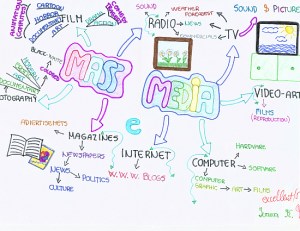 FILM
CARTOON
HORROR
DOCUMENTARY
ART
SOUND
RADIO
NEWS
WEATHER FORECAST
COMMERCIALS
TV
SOUND & PICTURE
BLACK-WHITE
COLOUR
MASS
MEDIA
VIDEO-ART
FILMS
(REPRODUCTION)
ADVERTISEMETS
MAGAZINES
NEWSPAPERS
NEWS
POLITICS
CULTURE
e
INTERNET
W.W.W. BLOGS
COMPUTER
HARDWARE
SOFTWARE
COMPUTER
GRAPHIC
ART
FILMS